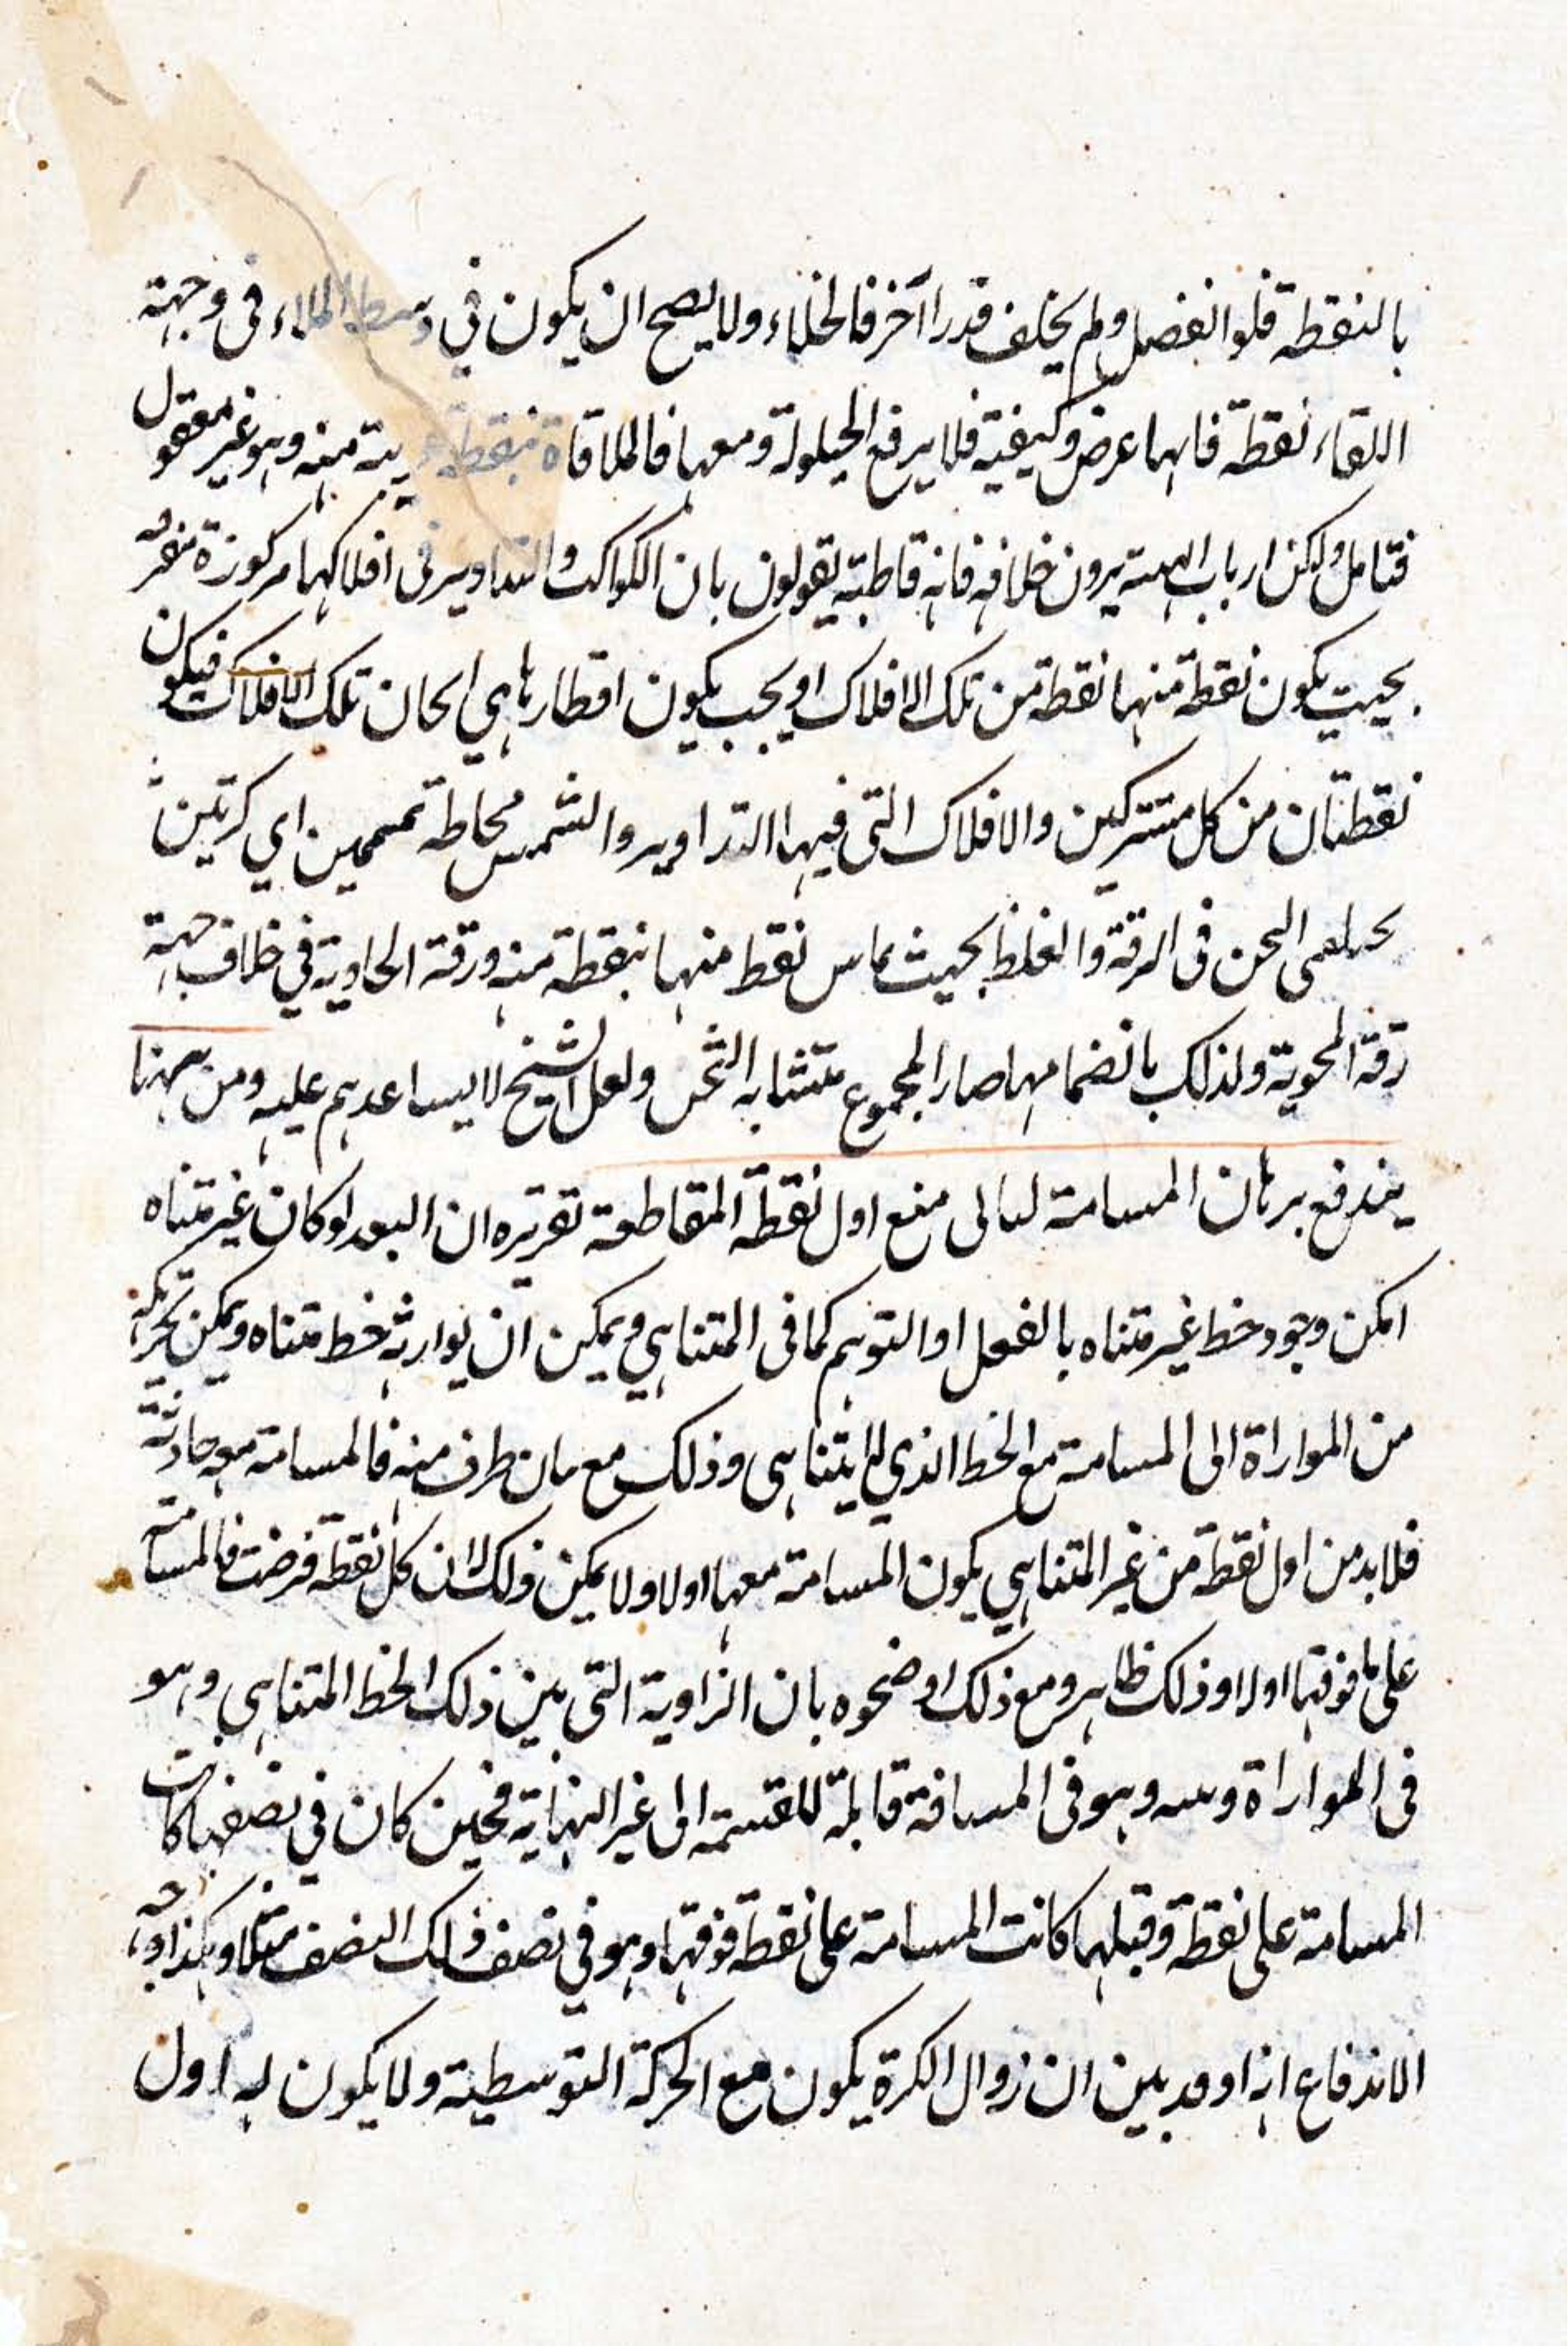 بالنقطة فلو انفصل ولم يخلف قدرا آخر فالخلاء ولا يصح ان يكون في وسط الملاء في وجهة
اللقاء نقطة فانها عرض وكيفية فلا يرفع الحيلولة ومعها فالملاقاة بنقطة منه وهو غير معقول
فتامل ولكن ارباب الهيئة يرون خلافه فانه قاطبة يقولون بان الكواكب والتداوير في افلاكها مركوزة
بحيث يكون نقطة منها نقطة من تلك الافلاك او يجب يكون اقطارها هي اثخان تلك الافلاك فيكون
نقطتان من كل مشتركين والافلاك التي فيها التداوير والشمس محاطة تممين اي كرتين
الثخن في الرقة والغلظ بحيث يماس نقط منها بنقطة منه ورقة الحاوية في خلاف جهة
رقة المحوية ولذلك بانضمامها صار المجموع متشابه الثخن ولعل الشيخ لا يساعدهم عليه ومن ههنا
يندفع برهان المسامتة منع اول نقطة المقاطعة تقريره ان البعد لو كان غير متناه
امكن وجود خط غير متناه بالفعل او التوهم كما في المتناهي ويمكن ان يوازيه خط متناه ويمكن تحركه
من الموازاة الى المسامتة مع الخط الذي لا يتناهى وذلك مع طرف منه فالمسامتة معه حادثة
فلا بد من اول نقطة من غير المتناهي يكون المسامتة معها اولا ولا يمكن ذلك لان كل نقطة فرضت فالمسامتة
على ما فوقها اولا وذلك ظاهر ومع ذلك اوضحوه بان الزاوية التي بين ذلك الخط المتناهي وهو
في الموازاة وبينه وهو في المسافة قابلة للقسمة الى غير النهاية فحين كان في نصفها كانت
المسامتة على نقطة وقبلها كانت المسامتة على نقطة فوقها وهو في نصف ذلك النصف مثلا وهكذا وجه
الاندفاع انه او قد بين ان زوال الكرة يكون مع الحركة التوسطية ولا يكون له اول